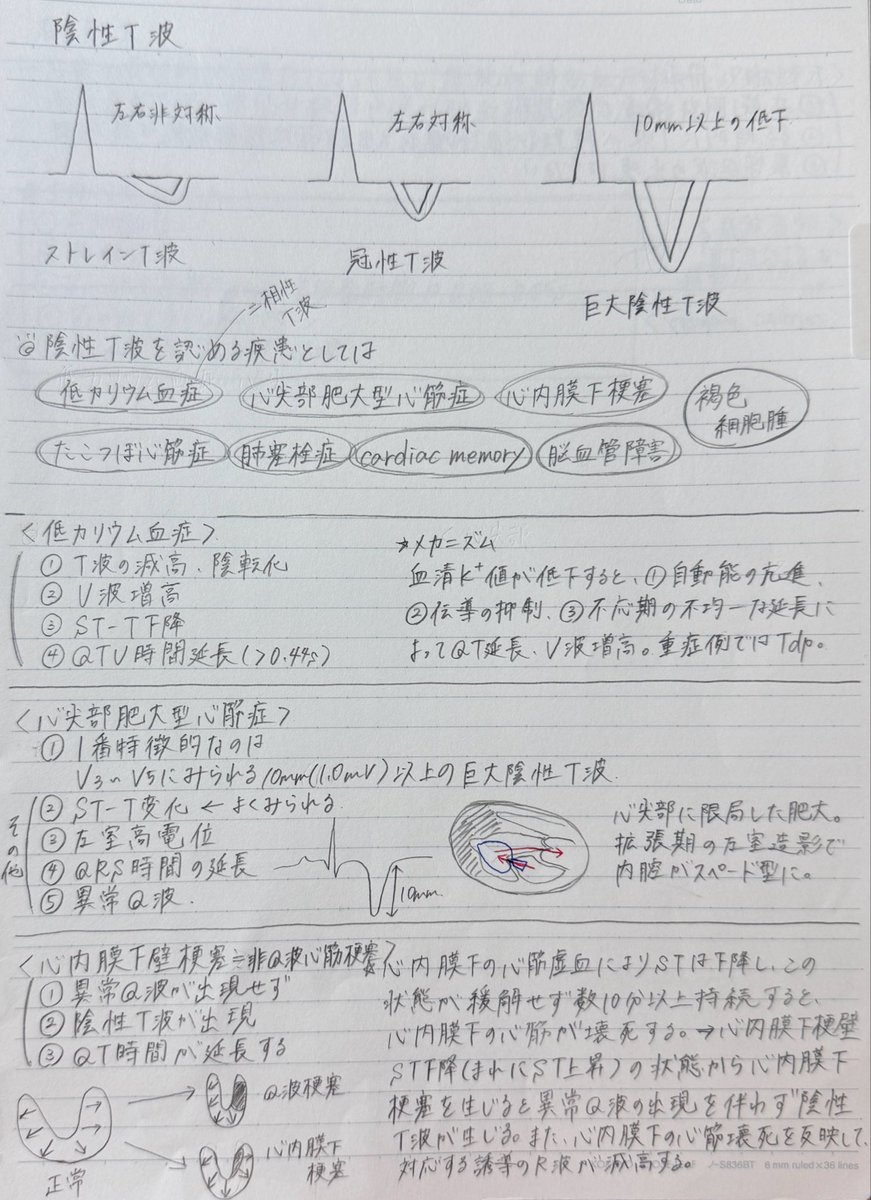 陰性T波
左右非対称
左右対称
10mm以上の低下
ストレインT波
冠性T波
巨大陰性T波
=相性
T波
陰性T波を認める疾患としては
低カリウム血症
心尖部肥大型心筋症
心内膜下梗塞
褐色
細胞腫
たこつぼ心筋症
肺塞栓症
cardiac memory
脳血管障害
<低カリウム血症>
① T波の減高、陰転化
② U波増高
③ ST-T下降
④ QTU時間延長(>0.44s)
メカニズム
血清K⁺値が低下すると、①自動能の亢進、
②伝導の抑制、③不応期の不均一な延長に
よってQT延長、U波増高。重症例ではTdp。
<心尖部肥大型心筋症>
① 1番特徴的なのは
V3〜V5にみられる10mm(1.0mV)以上の巨大陰性T波.
その他
② ST-T変化 ← よくみられる
③ 左室高電位
④ QRS時間の延長
⑤ 異常Q波.
10mm.
心尖部に限局した肥大。
拡張期の左室造影で
内腔がスペード型に。
<心内膜下壁梗塞≒非Q波心筋梗塞>
① 異常Q波が出現せず
② 陰性T波が出現
③ QT時間が延長する
心内膜下の心筋虚血によりSTは下降し、この
状態が緩解せず数10分以上持続すると、
心内膜下の心筋が壊死する。→心内膜下梗壁
ST下降(まれにST上昇)の状態から心内膜下
梗塞を生じると異常Q波の出現を伴わず陰性
T波が生じる。また、心内膜下の心筋壊死を反映して、
対応する誘導のR波が減高する。
正常
Q波梗塞
心内膜下
梗塞
ノ-S836BT 6 mm ruled×36 lines